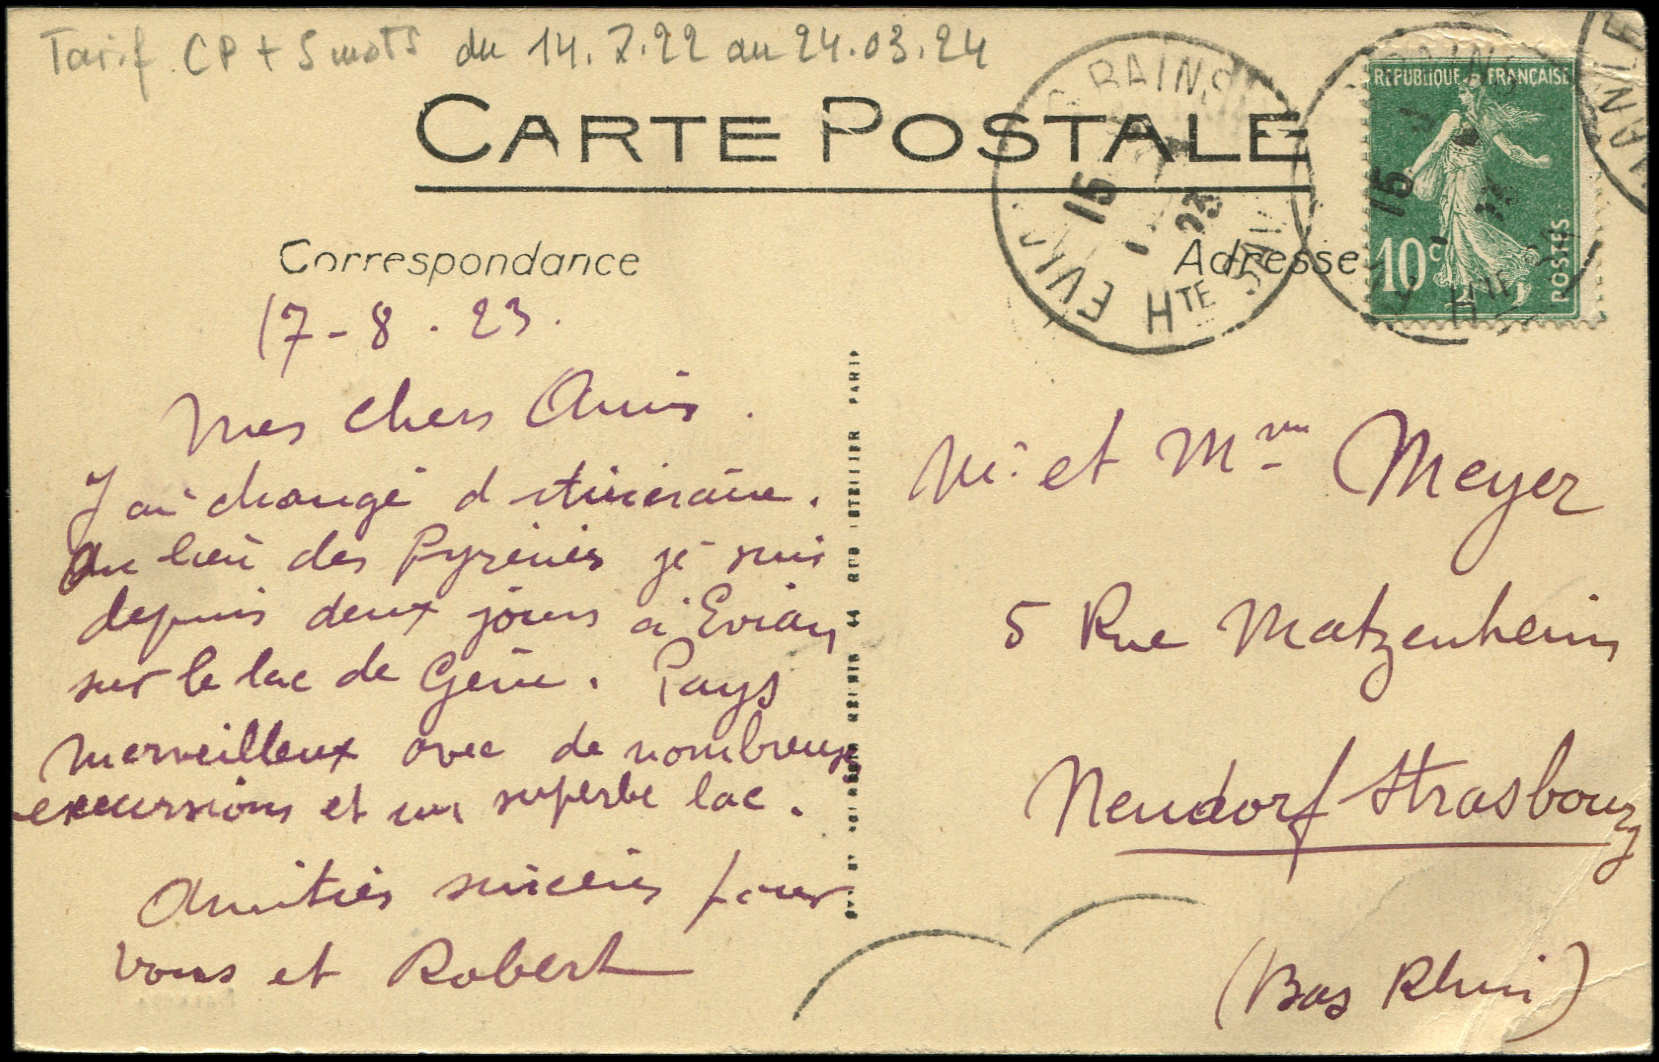 Tarif CP + 5 mots du 14.7.22 au 24.03.24
CARTE POSTALE
Correspondance
Adresse
RÉPUBLIQUE FRANÇAISE
10c
POSTES
BAINS
15
23
HTE
17-8.23.
Mes chers Amis.
J ai changé d itinéraire.
Au lieu des Pyrénées je suis
depuis deux jours à Evian
sur le lac de Genève. Pays
merveilleux avec de nombreuses
excursions et un superbe lac.
Amitiés sincères pour
vous et Robert
Mr. et Mme Meyer
5 Rue Matzenheim
Neudorf Strasbourg
(Bas Rhin)